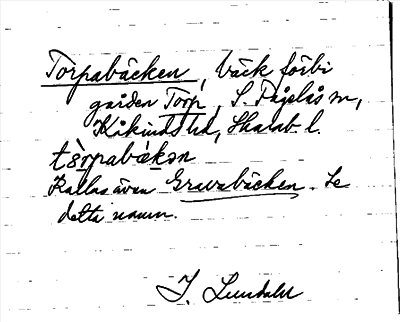 Torpabäcken, bäck förbi
gården Torp, S. Fågelås sn,
Kåkinds hd, Skarab. l.
tòrpabækən
Kallas även Gravabäcken. Se
detta namn.
J. Lundahl